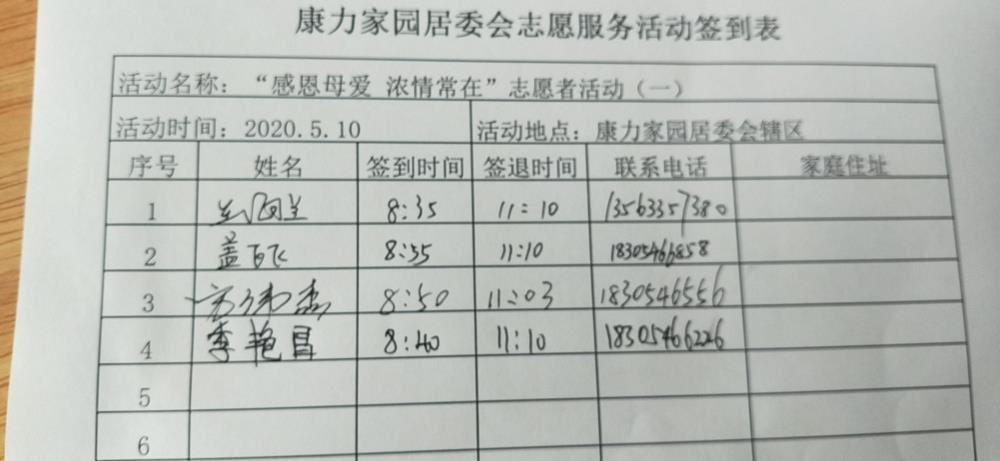 康力家园居委会志愿服务活动签到表
活动名称：“感恩母爱 浓情常在”志愿者活动（一）
活动时间：2020.5.10 活动地点：康力家园居委会辖区
序号 姓名 签到时间 签退时间 联系电话 家庭住址
1 8:35 11:10 13563357380
2 盖 飞 8:55 11:10 18305466858
3 8:50 11:03 1830546556
4 李艳昌 8:40 11:10 18305466226
5
6